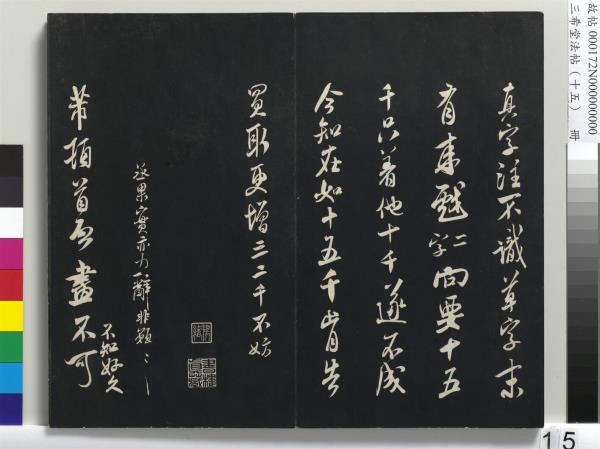 真字注不識草字末
有來戲二字向要十五
千只著他十千遂不成
今知在如十五千肯告
買取更增三二千不妨
果實亦力辭非願〻
芾頓首启盡不可
不知好久
故帖 000172N000000000
三希堂法帖（十五） 冊
15